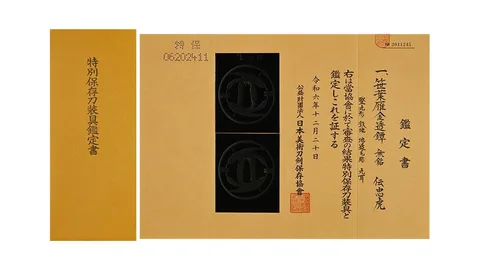 特別保存刀装具鑑定書
鑑定書
一、笹葉雁金透鐔 無銘 伝忠虎
竪丸形 鉄地 地透毛彫 丸耳
右は當協會に於て審査の結果特別保存刀装具と
鑑定しこれを証する
令和六年十二月二十日
公益財団法人 日本美術刀剣保存協會
特保
№ 2011245